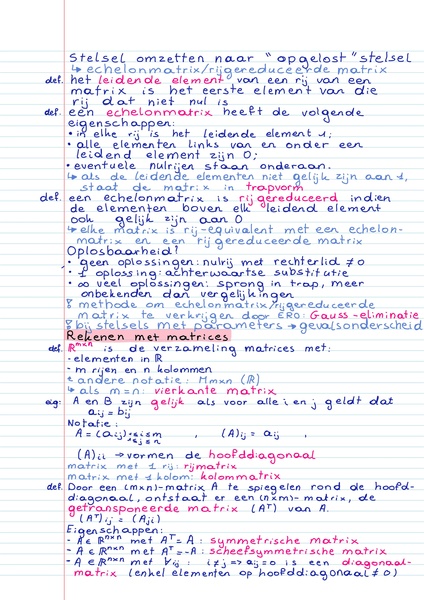 Stelsel omzetten naar "opgelost" stelsel
↳ echelonmatrix/rijgereduceerde matrix
def. het leidende element van een rij van een
matrix is het eerste element van die
rij dat niet nul is
def. een echelonmatrix heeft de volgende
eigenschappen:
• in elke rij is het leidende element 1;
• alle elementen links van en onder een
leidend element zijn 0;
• eventuele nulrijen staan onderaan.
↳ als de leidende elementen niet gelijk zijn aan 1,
staat de matrix in trapvorm
def. een echelonmatrix is rijgereduceerd indien
de elementen boven elk leidend element
ook gelijk zijn aan 0
↳ elke matrix is rij-equivalent met een echelon-
matrix en een rijgereduceerde matrix
Oplosbaarheid?
• geen oplossingen: nulrij met rechterlid ≠ 0
• 1 oplossing: achterwaartse substitutie
• ∞ veel oplossingen: sprong in trap, meer
onbekenden dan vergelijkingen
methode om echelonmatrix/rijgereduceerde
matrix te verkrijgen door ERO: Gauss-eliminatie
bij stelsels met parameters → gevalsonderscheid
Rekenen met matrices
def. ℝᵐˣⁿ is de verzameling matrices met:
- elementen in ℝ
- m rijen en n kolommen
andere notatie: Mm×n (ℝ)
↳ als m=n: vierkante matrix
eig: A en B zijn gelijk als voor alle i en j geldt dat
aij = bij
Notatie:
A = (aij) 1≤i≤m 1≤j≤n , (A)ij = aij ,
(A)ii → vormen de hoofddiagonaal
matrix met 1 rij: rijmatrix
matrix met 1 kolom: kolommatrix
def. Door een (m×n)-matrix A te spiegelen rond de hoofd-
diagonaal, ontstaat er een (n×m)-matrix, de
getransponeerde matrix (Aᵀ) van A.
(Aᵀ)ij = (Aji)
Eigenschappen:
- A ∈ ℝⁿˣⁿ met Aᵀ = A : symmetrische matrix
- A ∈ ℝⁿˣⁿ met Aᵀ = -A : scheefsymmetrische matrix
- A ∈ ℝⁿˣⁿ met ∀ij : i≠j ⇒ aij = 0 is een diagonaal-
matrix (enkel elementen op hoofddiagonaal ≠ 0)